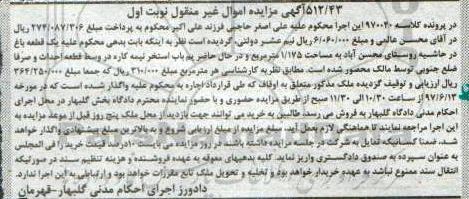 ۵۱۲/۴۳ آگهی مزایده اموال غیر منقول نوبت اول
در پرونده کلاسه ۹۷۰۰۴۰ این اجرا محکوم علیه علی اصغر حاجبی فرزند علی اکبر محکوم به پرداخت مبلغ ۲۷۴/۰۸۷/۳۰۶ ریال
در آقای محسن غالمی و مبلغ ۶/۰۶۰/۰۰۰ ریال نیم عشر دولتی گردیده است نظر به اینکه بابت بدهی محکوم علیه یک قطعه باغ
در حاشیه روستای محسن آباد به مساحت ۱۱۷۵ مترمربع و در حال حاضر یم باب استخر نیمه کاره در وسط قطعه احداث و صرفا
ضلع جنوبی توسط مالک محصور شده است. مطابق نظریه کارشناسی هر مترمربع مبلغ ۳۱۰/۰۰۰ ریال که جمعا مبلغ ۳۶۴/۲۵۰/۰۰۰
ریال ارزیابی و توقیف گردیده ملک مذکور متعلق به اوقاف که طی قرارداد اجاره به محکوم علیه واگذار شده است که در مورخه
۹۷/۶/۱۲ از ساعت ۱۰/۳۰ الی ۱۱/۳۰ صبح از طریق مزایده حضوری و با حضور نماینده محترم دادگاه بخش گلبهار در محل اجرای
احکام مدنی دادگاه گلبهار به فروش می رسد طالبین به خرید می توانند جهت بازدید از محل ملک پنج روز قبل از موعد مزایده به
این اجرا مراجعه نمایند تا هماهنگی لازم بعمل آید مبلغ مزایده از مبلغ ارزیابی شروع و به بالاترین مبلغ پیشنهادی واگذار خواهد
شد. ضمنا کسانیکه تمایل به شرکت در جلسه مزایده داشته باشند در روز مزایده می بایست ۱۰ درصد قیمت خرید را فی المجلس
به عنوان سپرده به صندوق دادگستری واریز نماید. کلیه بدهیهای معوقه به عهده فروشنده و هزینه تنظیم سند در صورتیکه
انتقال سند ممنوع نباشد به عهده خریدار خواهد بود و تخلیه و تحویل ملک تابع مقررات خواهد بود و ارتباطی به این اجرا ندارد.
دادورز اجرای احکام مدنی گلبهار- قهرمان